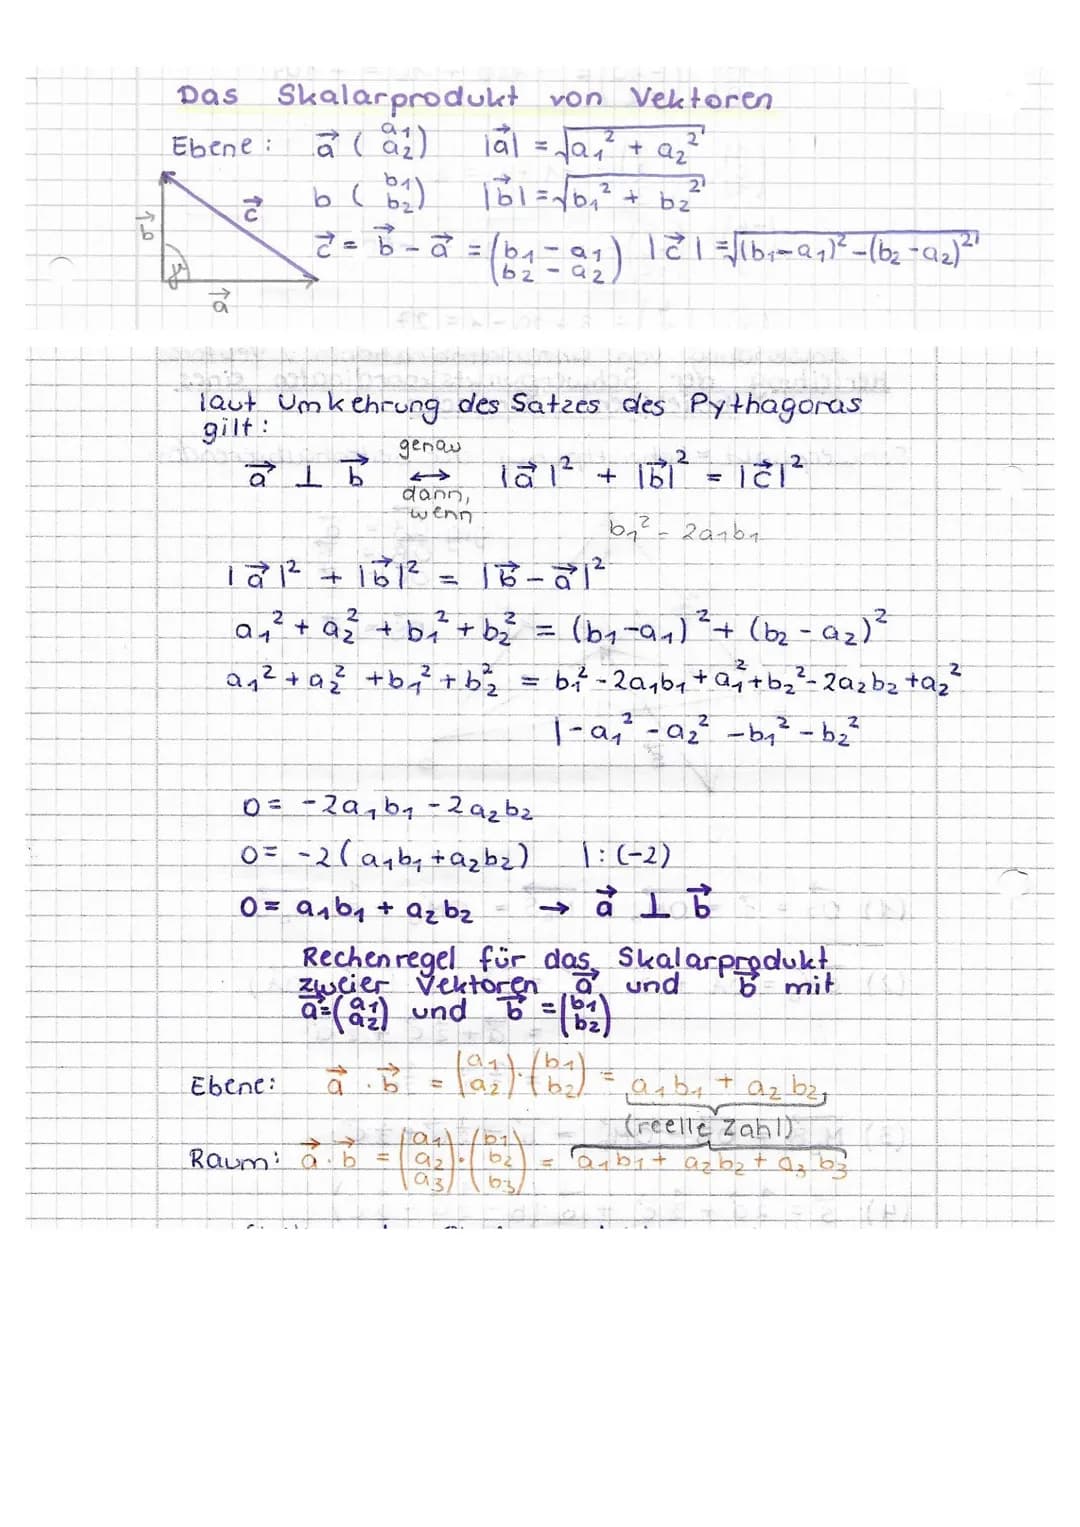 Das Skalarprodukt von Vektoren
Ebene: a⃗ (a₁ a₂) |a⃗| = √(a₁² + a₂²)
b (b₁ b₂) |b⃗| = √(b₁² + b₂²)
c⃗ = b⃗ - a⃗ = (b₁ - a₁ b₂ - a₂) |c⃗| = √((b₁-a₁)² - (b₂-a₂)²)
b⃗
c⃗
γ
a⃗
laut Umkehrung des Satzes des Pythagoras
gilt:
a⃗ ⊥ b⃗ genau ↔ dann, wenn |a⃗|² + |b⃗|² = |c⃗|²
b₁² - 2a₁b₁
|a⃗|² + |b⃗|² = |b⃗ - a⃗|²
a₁² + a₂² + b₁² + b₂² = (b₁-a₁)² + (b₂-a₂)²
a₁² + a₂² + b₁² + b₂² = b₁² - 2a₁b₁ + a₁² + b₂² - 2a₂b₂ + a₂²
|-a₁² - a₂² - b₁² - b₂²
0 = -2a₁b₁ - 2a₂b₂
0 = -2(a₁b₁ + a₂b₂) |:(-2)
0 = a₁b₁ + a₂b₂ → a⃗ ⊥ b⃗
Rechenregel für das Skalarprodukt
zweier Vektoren a⃗ und b⃗ mit
a⃗ = (a₁ a₂) und b⃗ = (b₁ b₂)
Ebene: a⃗ · b⃗ = (a₁ a₂) · (b₁ b₂) = a₁b₁ + a₂b₂
(reelle Zahl)
Raum: a⃗ · b⃗ = (a₁ a₂ a₃) · (b₁ b₂ b₃) = a₁b₁ + a₂b₂ + a₃b₃